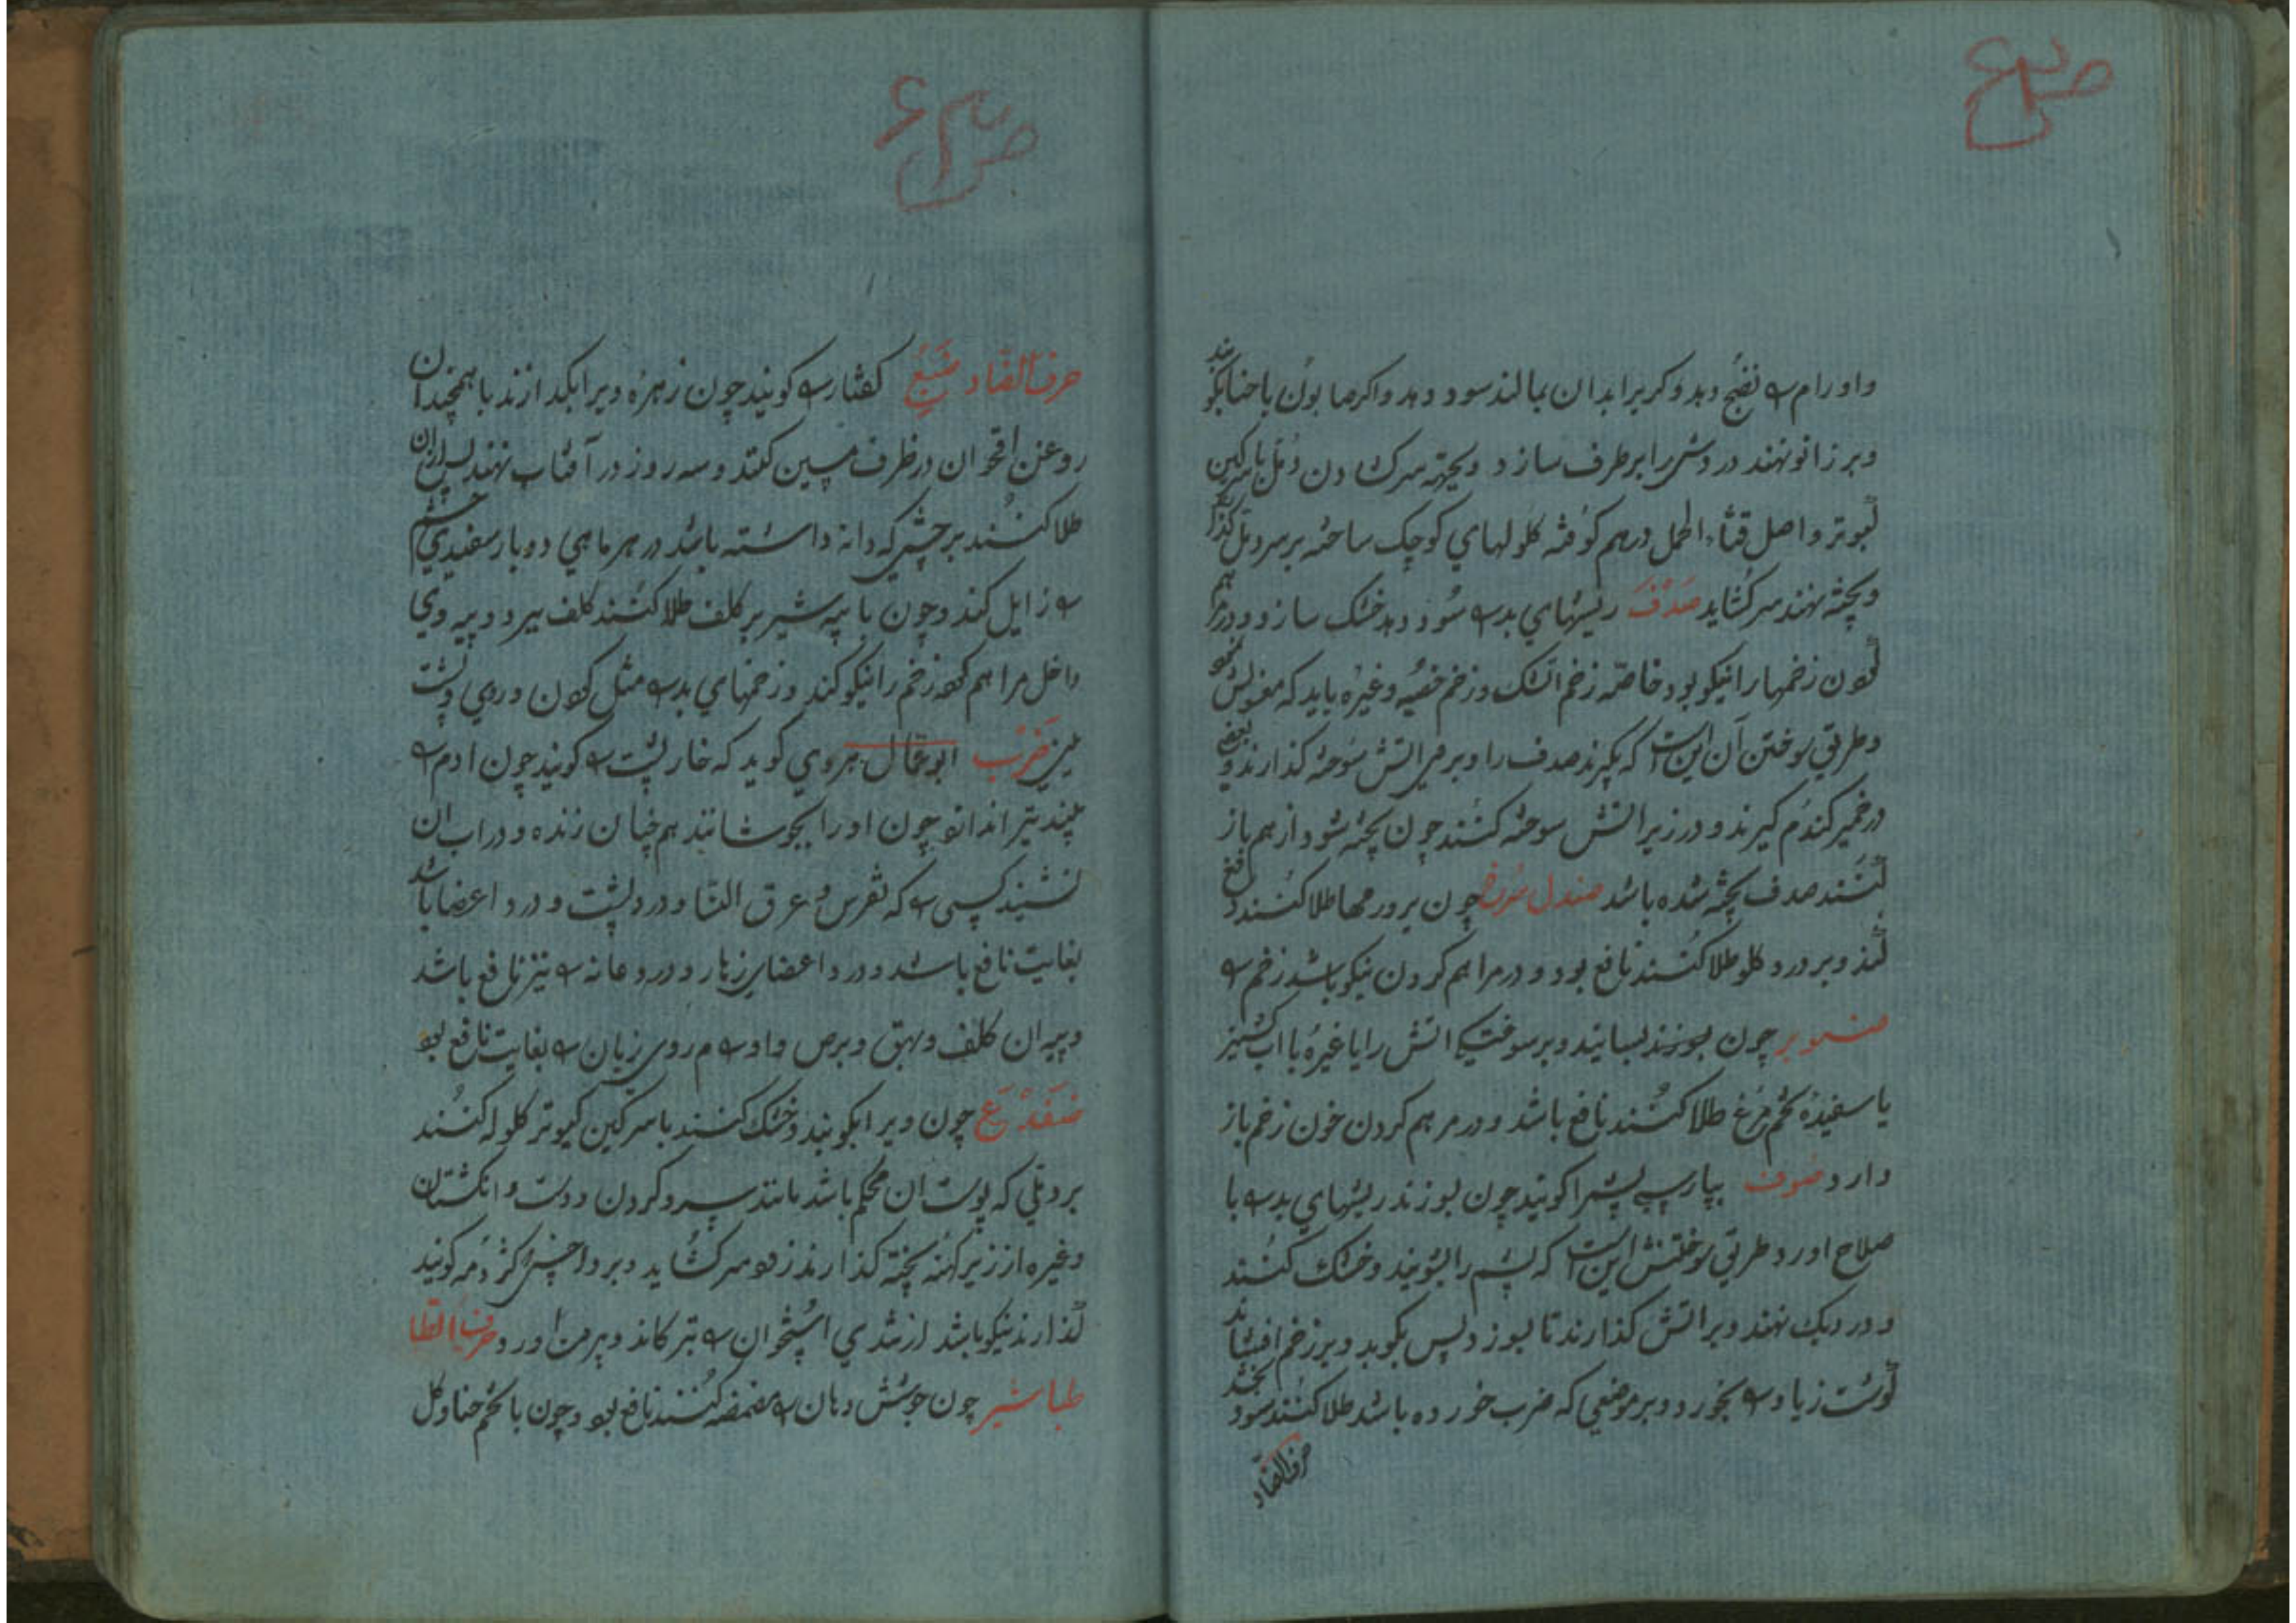 واورام را نضج دهد وکر برابدان بمالند سود دهد واکر صابون باحنا بکوبند
وبر زانو نهند دردش را برطرف سازد وبجهته سرکشادن دمل باسرکین
کبوتر واصل قثاء الحمل درهم کوفته کلولهای کوچک ساخته برسر دمل
وپخته نهند سرکشاید صدف ریشهای بد را سود دهد خشک سازد ودر مرهم
کردن زخمها را نیکو بود خاصه زخم اتشک وزخم خصیه وغیره باید که مغسولش
وطریق سوختن آن اینست که بکیرند صدف را وبر اتش سوخته کذارند وبعضی
درخمیر کندم کیرند ودر زیر اتش سوخته کنند چون پخته شود از هم باز
کنند صدف پخته شده باشد صندل سرخ چون بر ورمها طلا کنند دفع
کند وبر درد کلو طلا کنند نافع بود ودر مراهم کردن نیکو باشد زخم را
صنوبر چون بوزند بسایند وبر سوختکی اتش را یا غیره با اب کشنیز
یا سفیده تخم مرغ طلا کنند نافع باشد ودر مرهم کردن خون زخم باز
دارد صوف بپارسی پشم را کویند چون بسوزند ریشهای بد را با
صلاح اورد وطریق سوختنش اینست که پشم را بشویند وخشک کنند
ودر دیک نهند وبر اتش کذارند تا بسوزد پس بکوبد وبر زخم افشانند
کوشت زیاد را بخورد وبر موضعی که ضرب خورده باشد طلا کنند سود بخشد
حرف الضاد
حرف الضاد ضبع کفتار را کویند چون زهره ویرا بکدازند با همچندان
روغن اقحوان در ظرف مسین کنند وسه روز در آفتاب نهند پس ازان
طلا کنند بر چشمی که دانه داشته باشد در هر ماهی دو بار سفیدی چشم
را زایل کند وچون با پیه شیر بر کلف طلا کنند کلف ببرد وپیه وی
داخل مراهم کرده زخم را نیکو کند وزخمهای بد را مثل کون وروی وپشت
نیز ضرب ابوعمال هروی کوید که خارپشت را کویند چون ادم را
بیند تیر اندازد چون او را بجوشانند هم چنان زنده ودر اب ان
نشیند کسی را که نقرس وعرق النسا ودرد پشت ودرد اعضا باشد
بغایت نافع باشد ودرد اعضای زهار ودرد عانه را نیز نافع باشد
وپیه ان کلف وبهق وبرص واورام روی زنان را بغایت نافع بود
ضفدع چون ویرا بکویند وخشک کنند با سرکین کبوتر کلوله کنند
بر دملی که پوست ان محکم باشد مانند سر وکردن ودست وانکشتان
وغیره از زیر کهنه پخته کذارند زود سرکشاید وبر داخس که کژدمه کویند
کذارند نیکو باشد ارشدی استخوان را بترکاند وبیرون اورد حرف الطا
طباشیر چون جوشش دهان را مضمضه کنند نافع بود وچون با تخم حنا وکل